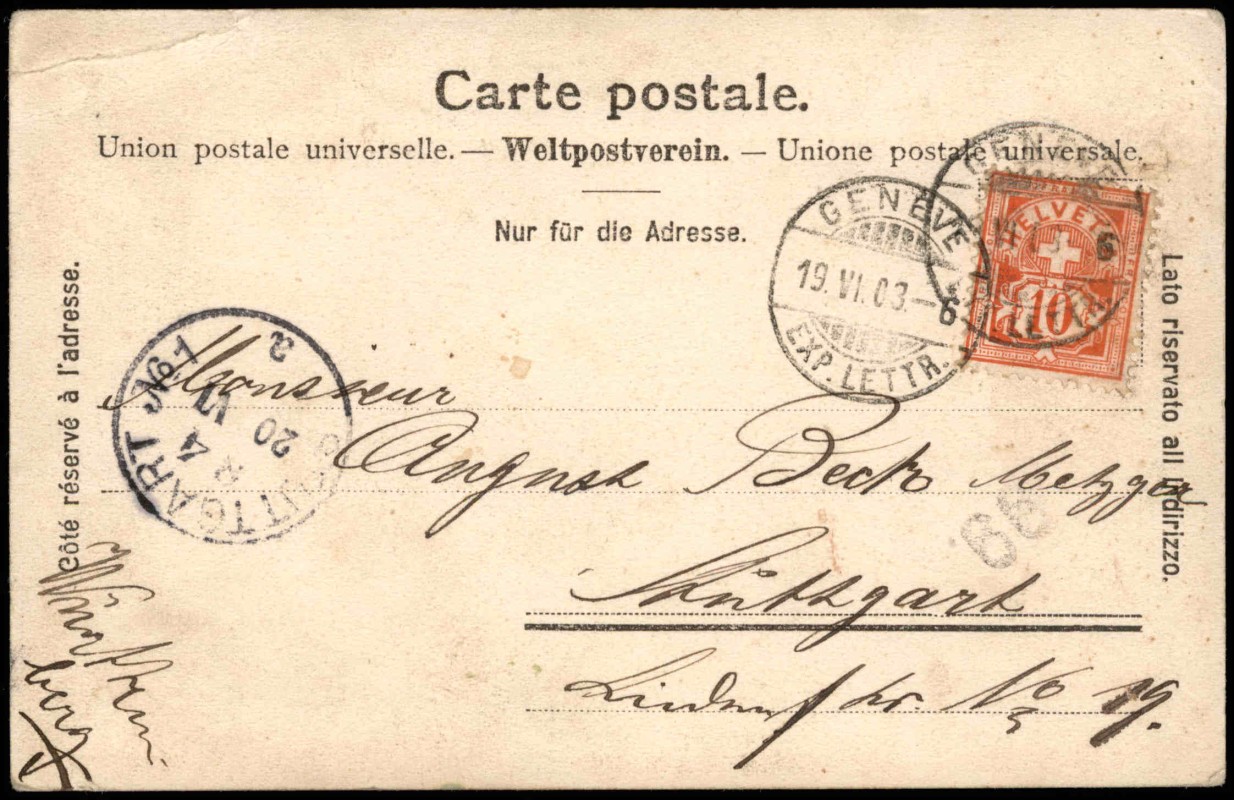 Carte postale.
Union postale universelle. — Weltpostverein. — Unione postale universale.
Nur für die Adresse.
Côté réservé à l'adresse.
Lato riservato all indirizzo.
GENÈVE
19.VI.03.–6
EXP. LETTR.
GENÈVE
6
LETTR.
HELVETIA
10
STUTTGART No. 1
20 VI
a
Monsieur
August Beck Metzger
Stuttgart
Lindenstr. No 19.
Württem
berg
69